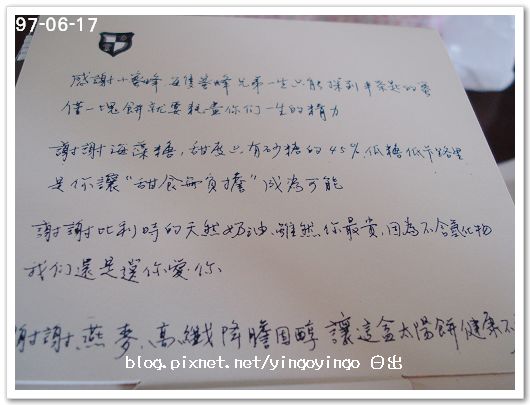 97-06-17
感謝小蜜蜂 每隻蜜蜂兄弟一生只能採到半茶匙的蜜
僅一塊餅就要耗盡你们一生的精力
謝謝海藻糖，甜度只有砂糖的45%，低糖低卡路里
是你讓“甜食無負擔”成為可能
謝謝比利時的天然奶油，雖然你最貴，因為不含氫化物
我们還是選你愛你
謝謝燕麥，高纖降膽固醇 讓這盒太陽餅健康不
blog.pixnet.net/yingoyingo 日出